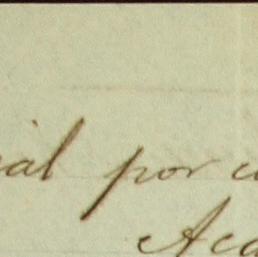 ial por c
Aca